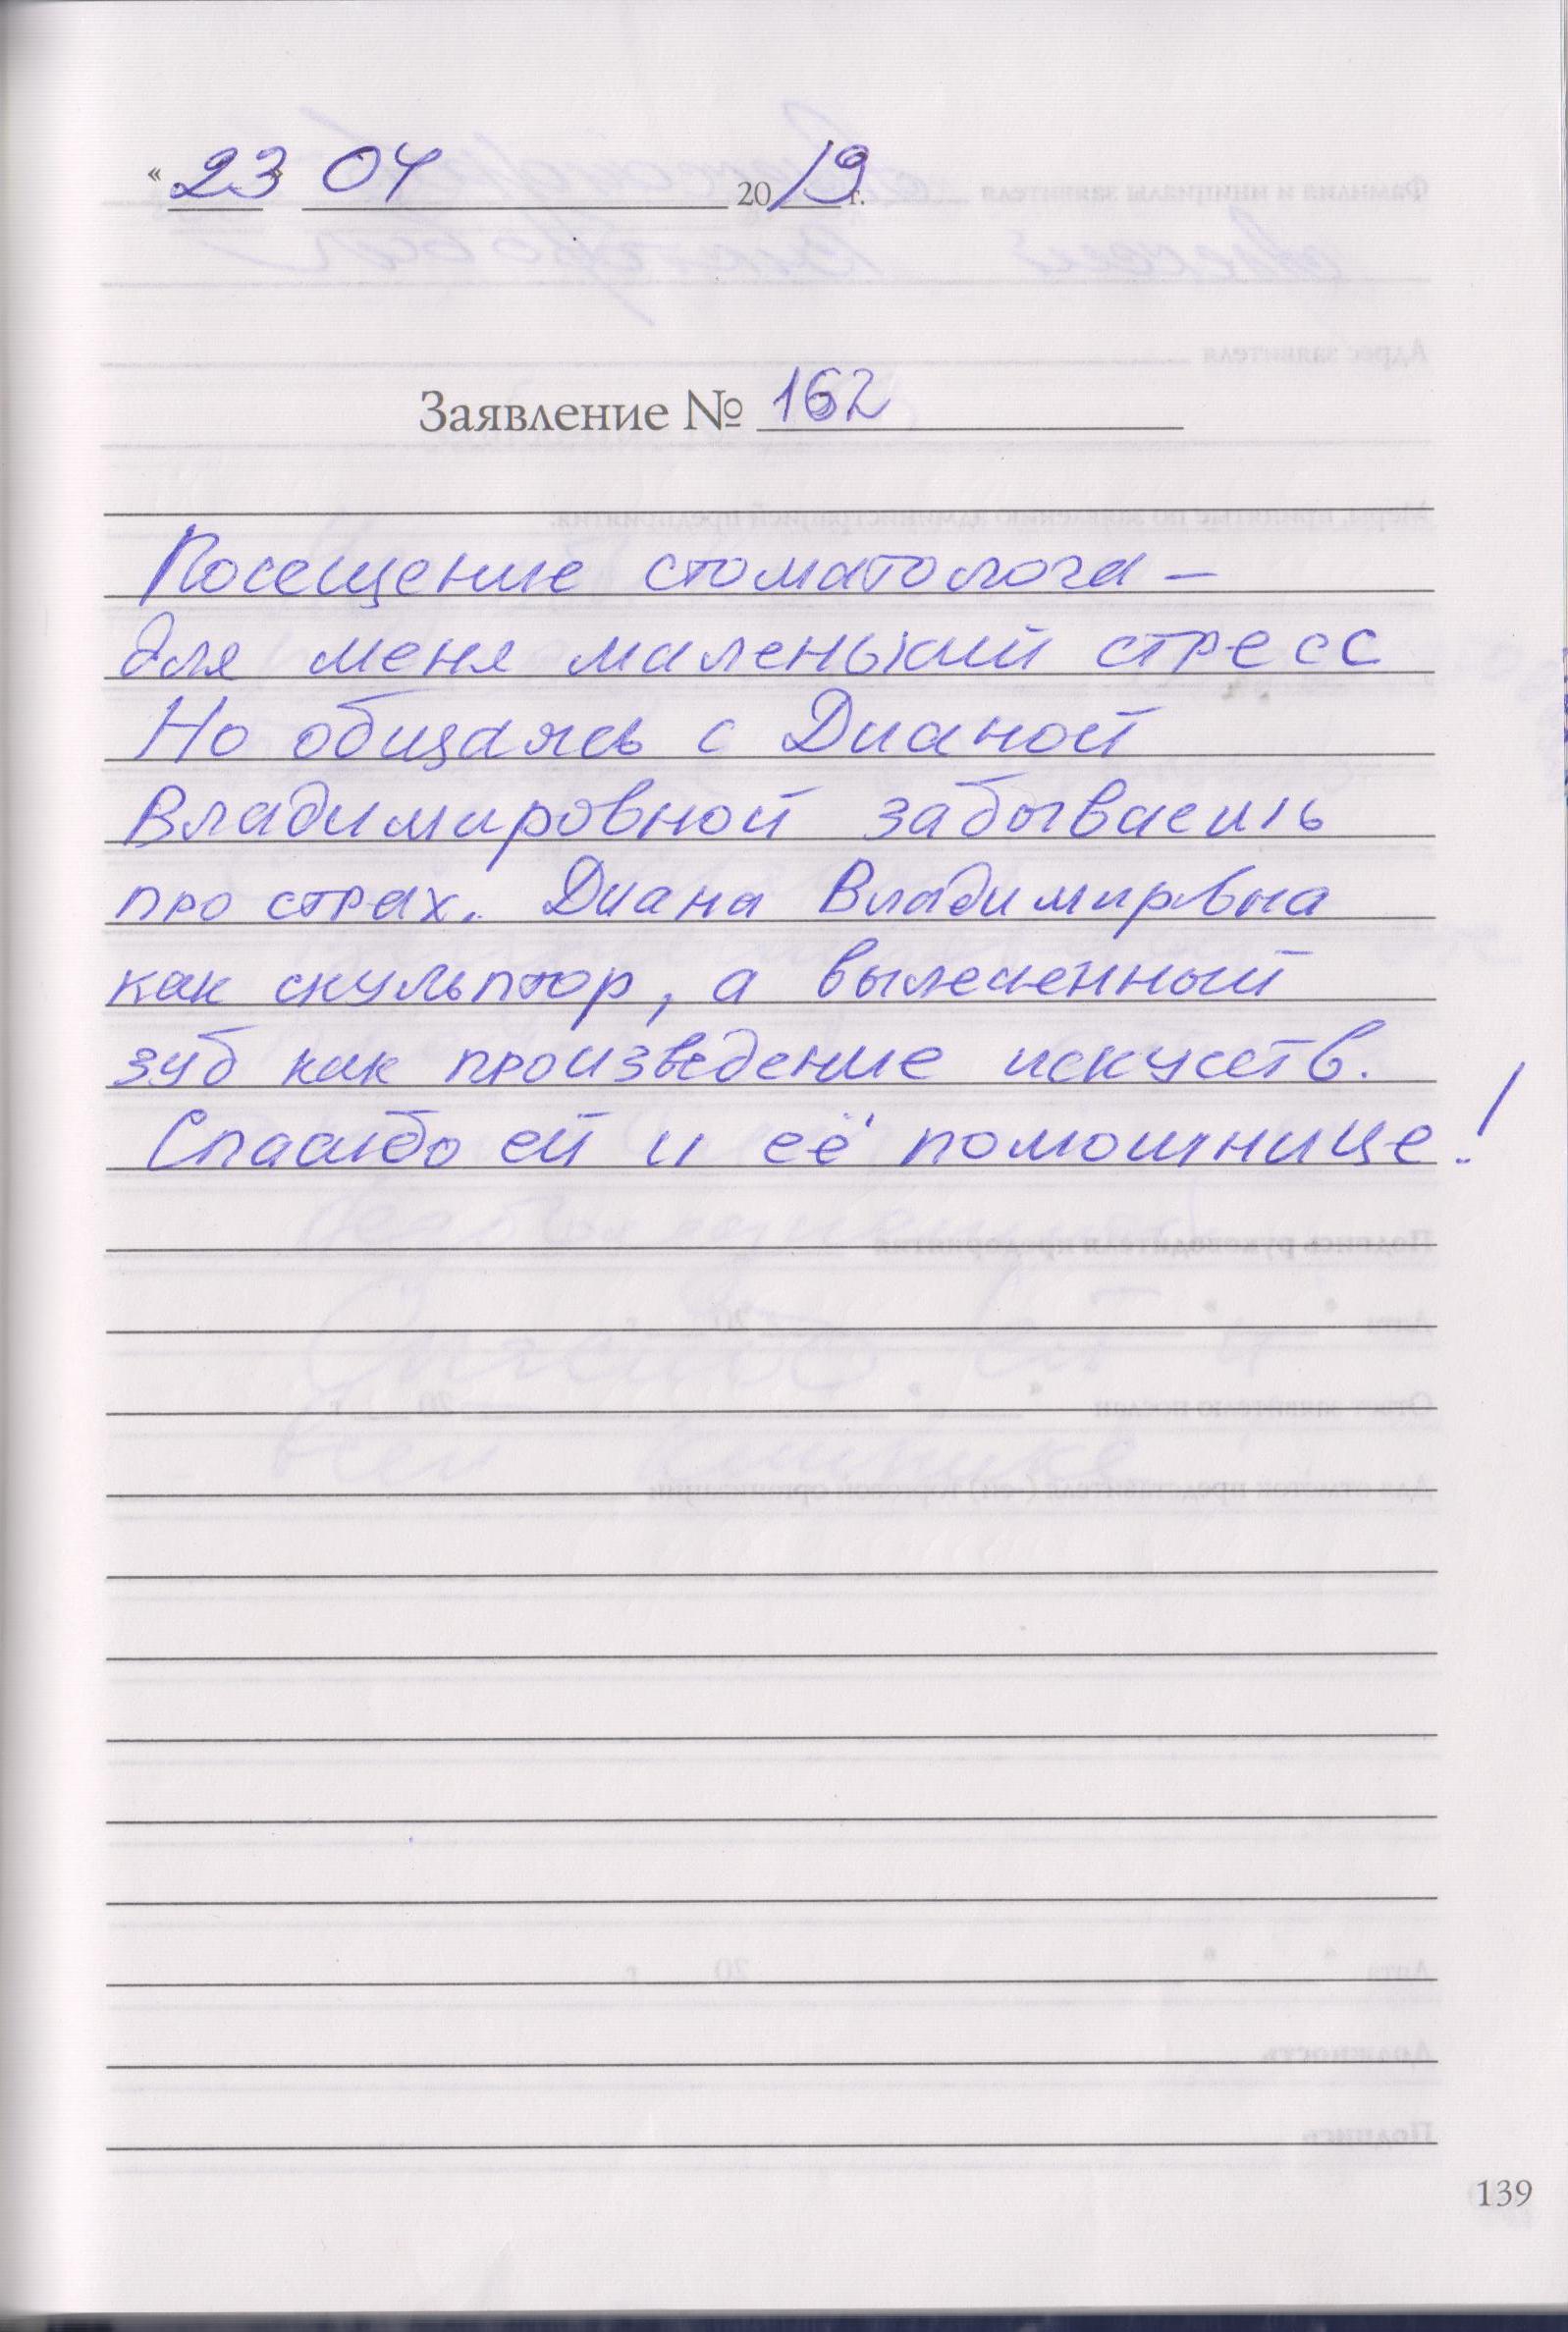 «23» 04 2019 г.
Заявление № 162
Посещение стоматолога –
для меня маленький стресс
Но общаясь с Дианой
Владимировной забываешь
про страх. Диана Владимирвна
как скульптор, а вылеченный
зуб как произведение искусств.
Спасибо ей и её помошнице!
139